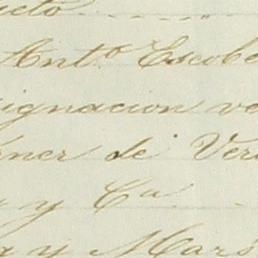 ucto
Antº Escobe
ignacion ve
ner de Ver
y Cª
y Mars